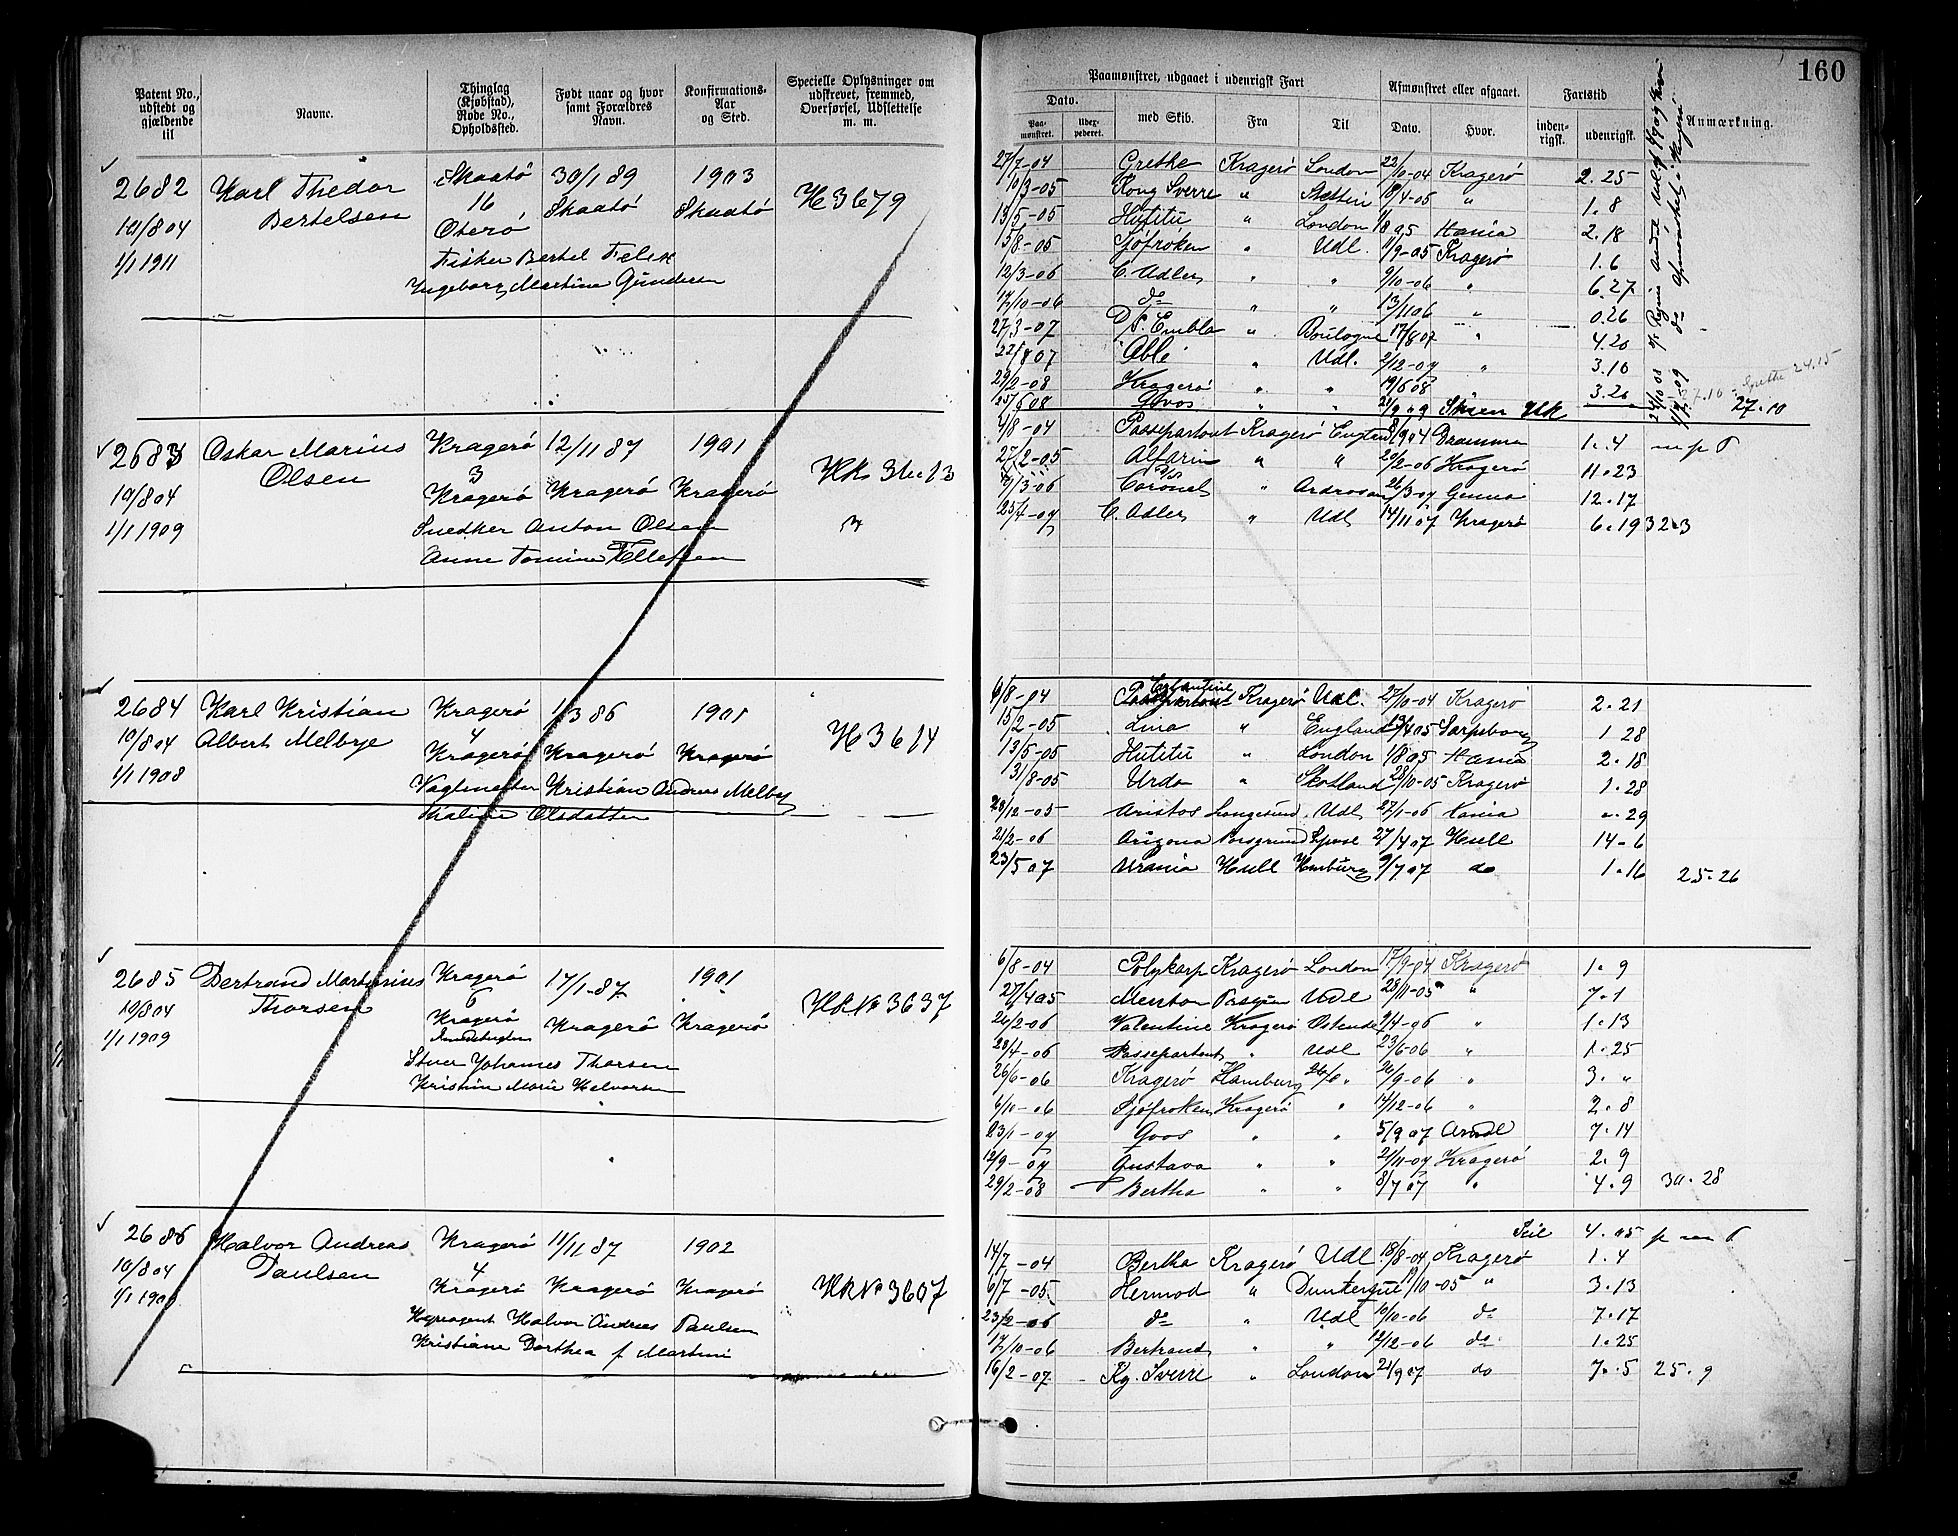 160
Patent No., udstedt og gjældende til
Navne.
Thinglag (Kjøbstad), Rode No., Opholdssted.
Født naar og hvor samt Forældres Navn.
Konfirmations-Aar og Sted.
Specielle Oplysninger om udskrevet, fremmed, Overførsel, Udslettelse m. m.
Paamønstret, udgaaet i udenrigsk Fart
Afmønstret eller afgaaet.
Fartstid
Anmærkning.
Dato.
med Skib.
Fra
Til
Dato.
Hvor.
inden-rigsk.
udenrigsk.
Paa-mønstret.
Udex-pederet.
2682 Karl Thedor Skaatö 30/1 89 1903 H 3679
Bertelsen 16 Skaatö Skaatö
19/8 04 Oterö
1/1 1911 Fisker Bertel Felix
Ingeborg Martine Gundersen
27/7-04 Grethe Kragerö London 22/10-04 Kragerö 2.25
10/3-05 Kong Sverre " Stettin 18/4-05 " 1.8
13/5-05 Hutitu " London 1/8 05 Hania 2.18
5/8-05 Sjöfröken " Udl. 11/9-05 Kragerö 1.6
12/3-06 C. Adler " " 9/10-06 " 6.27
17/10-06 do " " 13/11 06 " 0.26
27/3-07 D/S. Embla " Boulogne 17/8 07 " 4.20
22/8 07 Able " Udl. 2/12-07 " 3.10
29/2-08 Kragerö " " 19/6 08 " 3.20
25/6 08 Govos " " 21/9 09 Skien 27.10
2683 Oskar Marius Kragerö 12/11 87 1901
Olsen 3
19/8 04 Kragerö Kragerö Kragerö
1/1 1909 Snedker Anton Olsen
Anne Tomine Ellefsen
4/8-04 Passepartout Kragerö England 8/9 04 Drammen 1.4
27/2-05 Alfarin " " 20/2-06 Kragerö 11.23
7/3-06 Coronel " Ardrosan 26/3-07 Genua 12.17
25/4-07 C. Adler " Udl 14/11 07 Kragerö 6.19 32.3
2684 Karl Kristian Kragerö 1/3 86 1901 H 3614
19/8 04 Albert Melbye 4
1/1 1908 Kragerö Kragerö Kragerö
Vagtmester Kristian Andreas Melbye
Thaline Olsdatter
6/8-04 Kragerö Udl. 27/10-04 Kragerö 2.21
15/2-05 Lina " England 13/4 05 Sarpsborg 1 28
13/5-05 Hutitu " London 1/8 05 Hania 2.18
31/8-05 Urda " Skotland 28/10-05 Kragerö 1.28
28/12-05 Aristos Langesund Udl 27/1-06 Hania ".29
21/2-06 Arizona Porsgrund 27/4 07 Hull 14-6
23/5 07 Urania Hull Hamburg 9/7 07 do 1.16 25.26
2685 Bertrand Martinius Kragerö 17/1-87 1901 HR No 3637
Thorsen 6
19/8 04 Kragerö Kragerö Kragerö
1/1 1909 Stuer Johannes Thorsen
Kristine Marie Halvorsen
6/8-04 Polykarp Kragerö London 17/9-04 Kragerö 1.9
27/4 05 Mentor Udl 28/11-05 " 7.1
26/2-06 Valentine Kragerö Ostende 9/4-06 " 1.13
28/4-06 Passepartout " Udl 23/6-06 " 1.25
26/6-06 Kragerö Hamburg 26/9-06 " 3. "
6/10-06 Sjöfroken Kragerö " 14/12-06 " 2.8
23/1-07 Goos " " 5/9 07 Arndl 7.14
12/9-07 Gustava " " 21/11-07 Kragerö 2.9
29/2-08 Bertha " " 8/7 07 " 4.9 30.28
2686 Halvor Andreas Kragerö 11/11 87 1902 HR No 3607
19/8 04 Paulsen 4
1/1 1909 Kragerö Kragerö Kragerö
Halvor Andreas Paulsen
Kristiane Dorthea f Martini
Seil 4.05
14/7-04 Bertha Kragerö Udl 18/8-04 Kragerö 1.4
6/7-05 Hermod " Dunkerque 19/10-05 " 3.13
23/2-06 do " Udl 10/10-06 do 7.17
17/10-06 Bertrand " " 12/12-06 do 1.25
16/2-07 Kg. Sverre " London 21/9 07 do 7.5 25.9